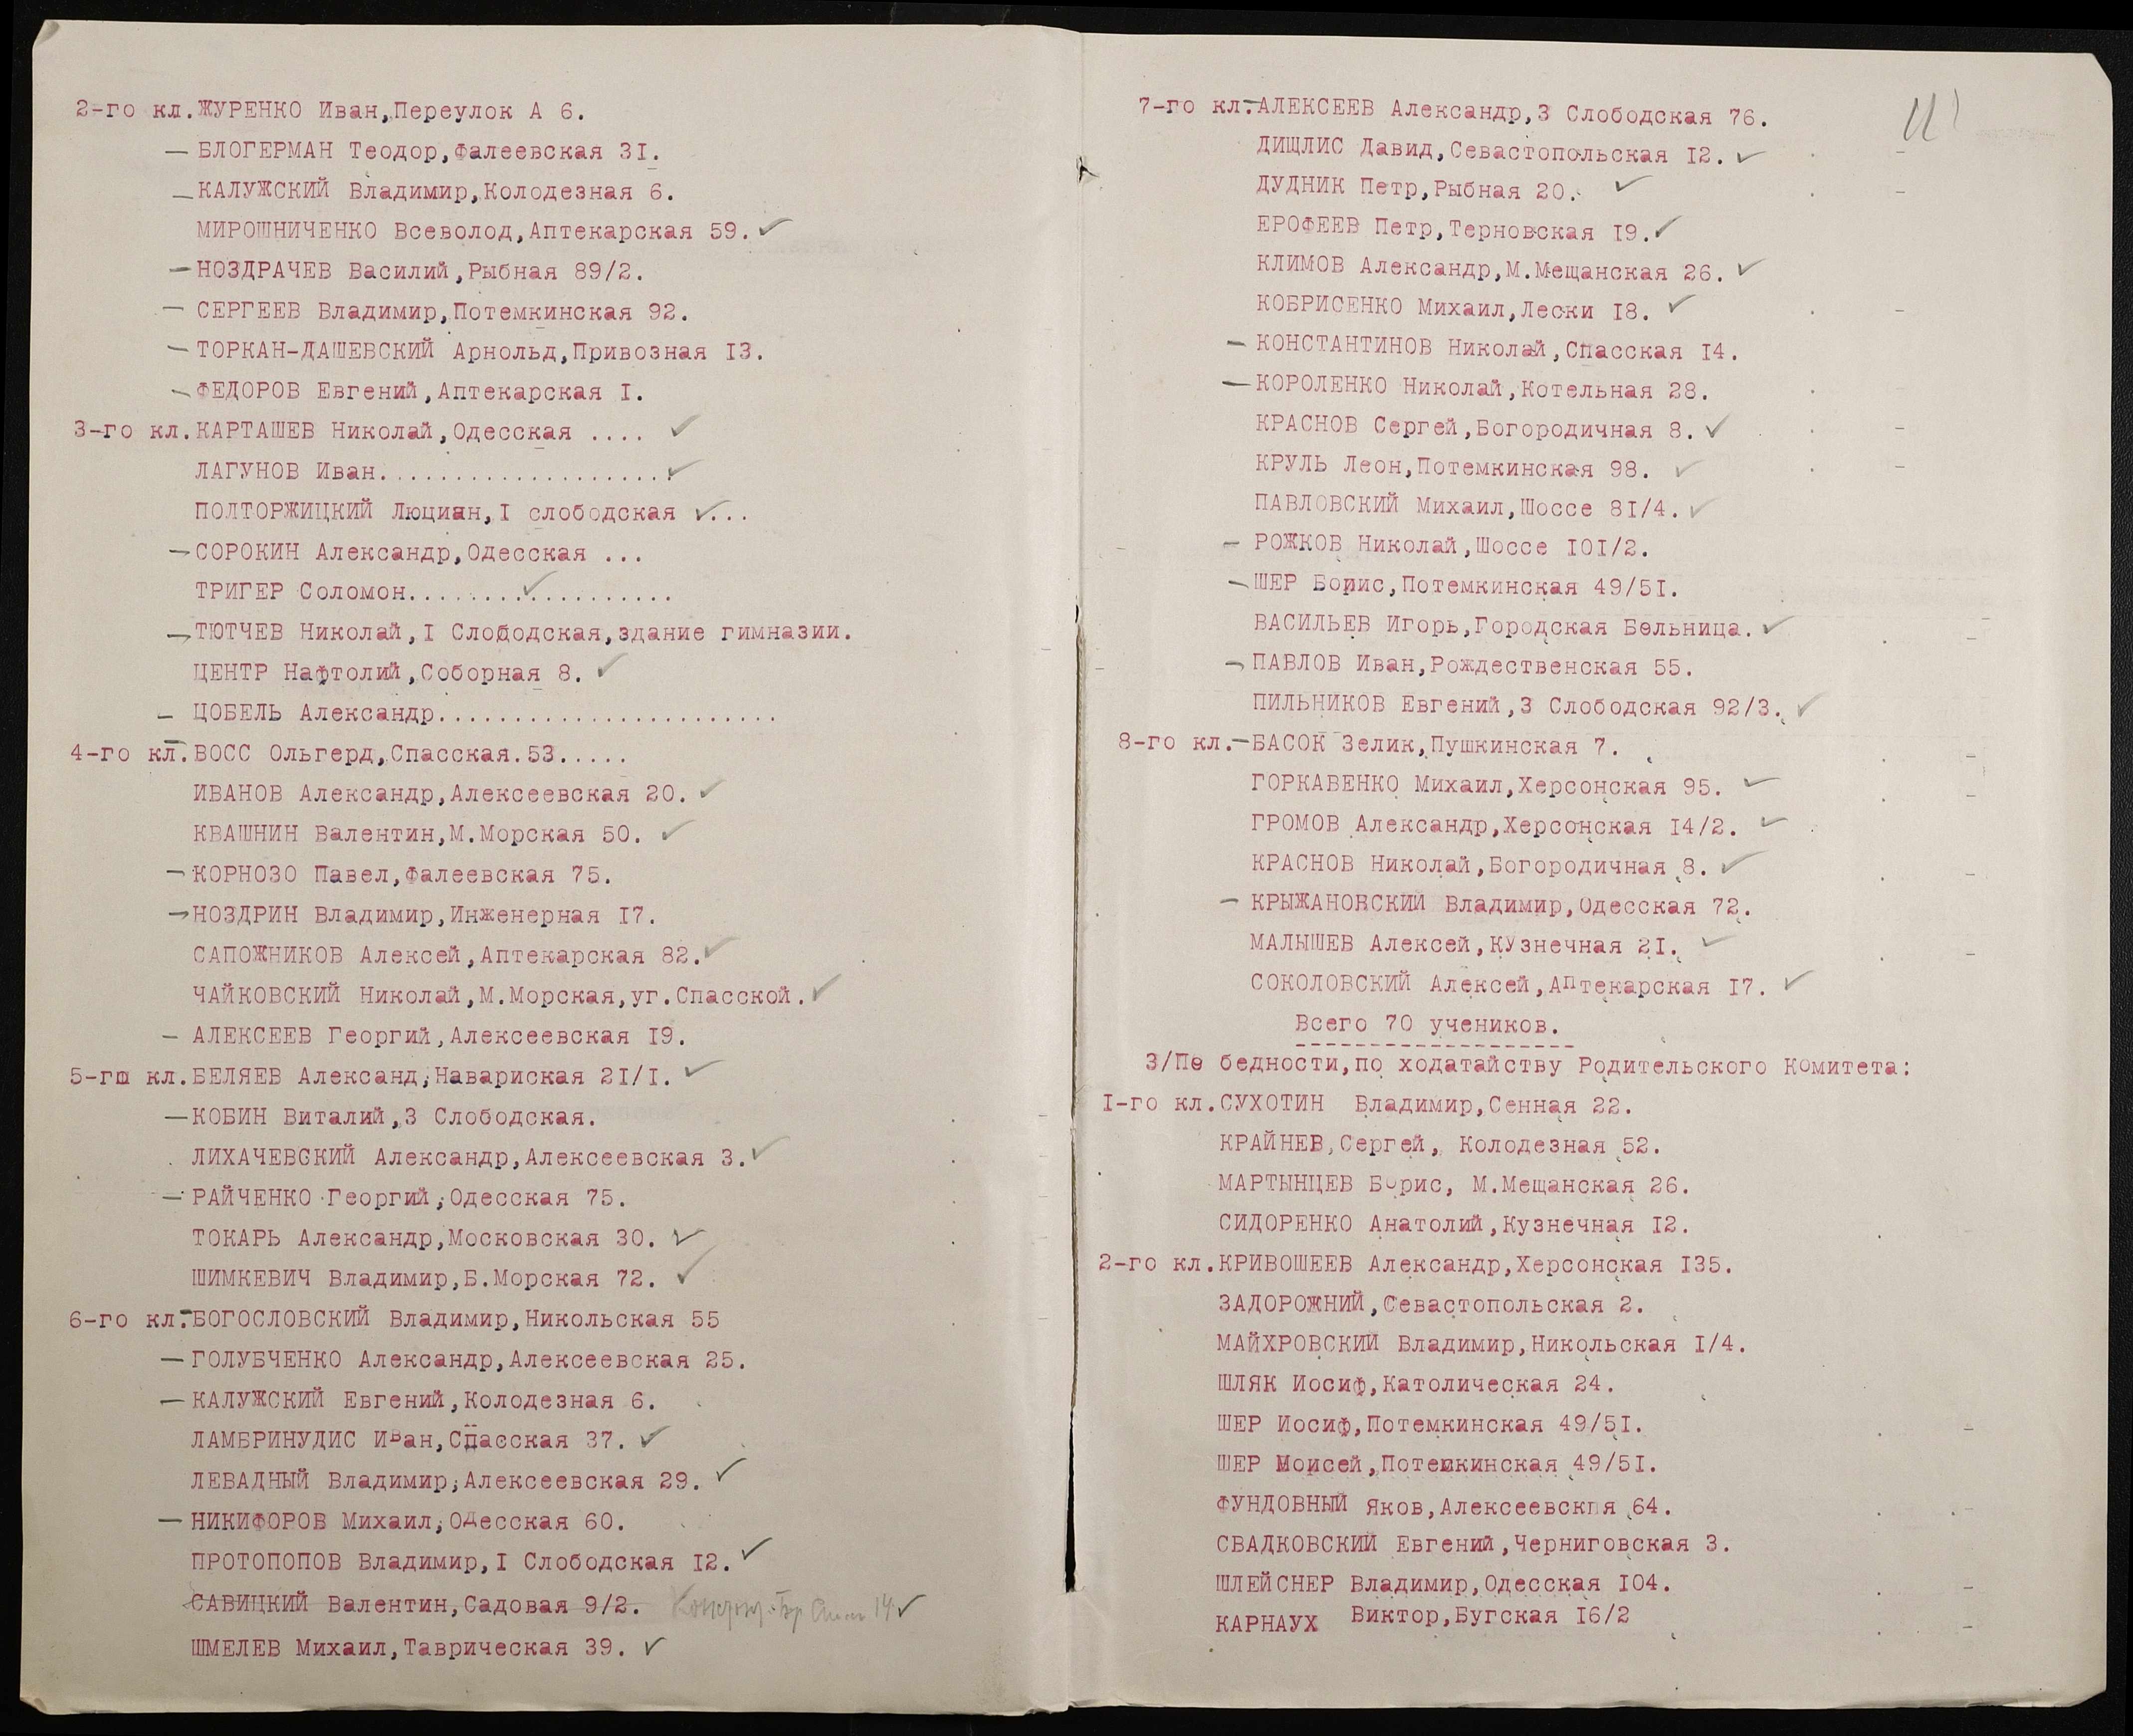 2-го кл.ЖУРЕНКО Иван,Переулок А 6.
— БЛОГЕРМАН Теодор,Фалеевская 3I.
— КАЛУЖСКИЙ Владимир,Колодезная 6.
МИРОШНИЧЕНКО Всеволод,Аптекарская 59. ✓
— НОЗДРАЧЕВ Василий,Рыбная 89/2.
— СЕРГЕЕВ Владимир,Потемкинская 92.
— ТОРКАН-ДАШЕВСКИЙ Арнольд,Привозная I3.
— ФЕДОРОВ Евгений,Аптекарская I.
3-го кл.КАРТАШЕВ Николай,Одесская .... ✓
ЛАГУНОВ Иван.................... ✓
ПОЛТОРЖИЦКИЙ Люциян,I слободская ✓...
— СОРОКИН Александр,Одесская ...
ТРИГЕР Соломон.......✓..........
— ТЮТЧЕВ Николай,I Слободская,здание гимназии.
ЦЕНТР Нафтолий,Соборная 8. ✓
— ЦОБЕЛЬ Александр.......................
4-го кл.— ВОСС Ольгерд,Спасская.53.....
ИВАНОВ Александр,Алексеевская 20. ✓
КВАШНИН Валентин,М.Морская 50. ✓
— КОРНОЗО Павел,Фалеевская 75.
— НОЗДРИН Владимир,Инженерная I7.
САПОЖНИКОВ Алексей,Аптекарская 82. ✓
ЧАЙКОВСКИЙ Николай,М.Морская,уг.Спасской. ✓
— АЛЕКСЕЕВ Георгий,Алексеевская I9.
5-го кл.БЕЛЯЕВ Александ,Навариская 2I/I. ✓
— КОБИН Виталий,3 Слободская.
ЛИХАЧЕВСКИЙ Александр,Алексеевская 3. ✓
— РАЙЧЕНКО Георгий,Одесская 75.
ТОКАРЬ Александр,Московская 30. ✓
ШИМКЕВИЧ Владимир,Б.Морская 72. ✓
6-го кл.— БОГОСЛОВСКИЙ Владимир,Никольская 55
— ГОЛУБЧЕНКО Александр,Алексеевская 25.
— КАЛУЖСКИЙ Евгений,Колодезная 6.
ЛАМБРИНУДИС Иван,Спасская 37. ✓
ЛЕВАДНЫЙ Владимир,Алексеевская 29. ✓
— НИКИФОРОВ Михаил,Одесская 60.
ПРОТОПОПОВ Владимир,I Слободская I2. ✓
САВИЦКИЙ Валентин,Садовая 9/2. 14 ✓
ШМЕЛЕВ Михаил,Таврическая 39. ✓
7-го кл.— АЛЕКСЕЕВ Александр,3 Слободская 76.
ДИЩЛИС Давид,Севастопольская I2. ✓
ДУДНИК Петр,Рыбная 20. ✓
ЕРОФЕЕВ Петр,Терновская I9. ✓
КЛИМОВ Александр,М.Мещанская 26. ✓
КОБРИСЕНКО Михаил,Лески I8. ✓
— КОНСТАНТИНОВ Николай,Спасская I4.
— КОРОЛЕНКО Николай,Котельная 28.
КРАСНОВ Сергей,Богородичная 8. ✓
КРУЛЬ Леон,Потемкинская 98. ✓
ПАВЛОВСКИЙ Михаил,Шоссе 8I/4. ✓
— РОЖКОВ Николай,Шоссе I0I/2.
— ШЕР Борис,Потемкинская 49/5I.
ВАСИЛЬЕВ Игорь,Городская Больница. ✓
— ПАВЛОВ Иван,Рождественская 55.
ПИЛЬНИКОВ Евгений,3 Слободская 92/3. ✓
8-го кл.— БАСОК Зелик,Пушкинская 7.
ГОРКАВЕНКО Михаил,Херсонская 95. ✓
ГРОМОВ Александр,Херсонская I4/2. ✓
КРАСНОВ Николай,Богородичная 8. ✓
— КРЫЖАНОВСКИЙ Владимир,Одесская 72.
МАЛЫШЕВ Алексей,КУзнечная 2I. ✓
СОКОЛОВСКИЙ Алексей,Аптекарская I7. ✓
Всего 70 учеников.
3/По бедности,по ходатайству Родительского Комитета:
I-го кл.СУХОТИН Владимир,Сенная 22.
КРАЙНЕВ,Сергей, Колодезная 52.
МАРТЫНЦЕВ Борис, М.Мещанская 26.
СИДОРЕНКО Анатолий,Кузнечная I2.
2-го кл.КРИВОШЕЕВ Александр,Херсонская I35.
ЗАДОРОЖНИЙ,Севастопольская 2.
МАЙХРОВСКИЙ Владимир,Никольская I/4.
ШЛЯК Иосиф,Католическая 24.
ШЕР Иосиф,Потемкинская 49/5I.
ШЕР Моисей,Потемкинская 49/5I.
ФУНДОВНЫЙ Яков,Алексеевская 64.
СВАДКОВСКИЙ Евгений,Черниговская 3.
ШЛЕЙСНЕР Владимир,Одесская I04.
КАРНАУХ Виктор,Бугская I6/2